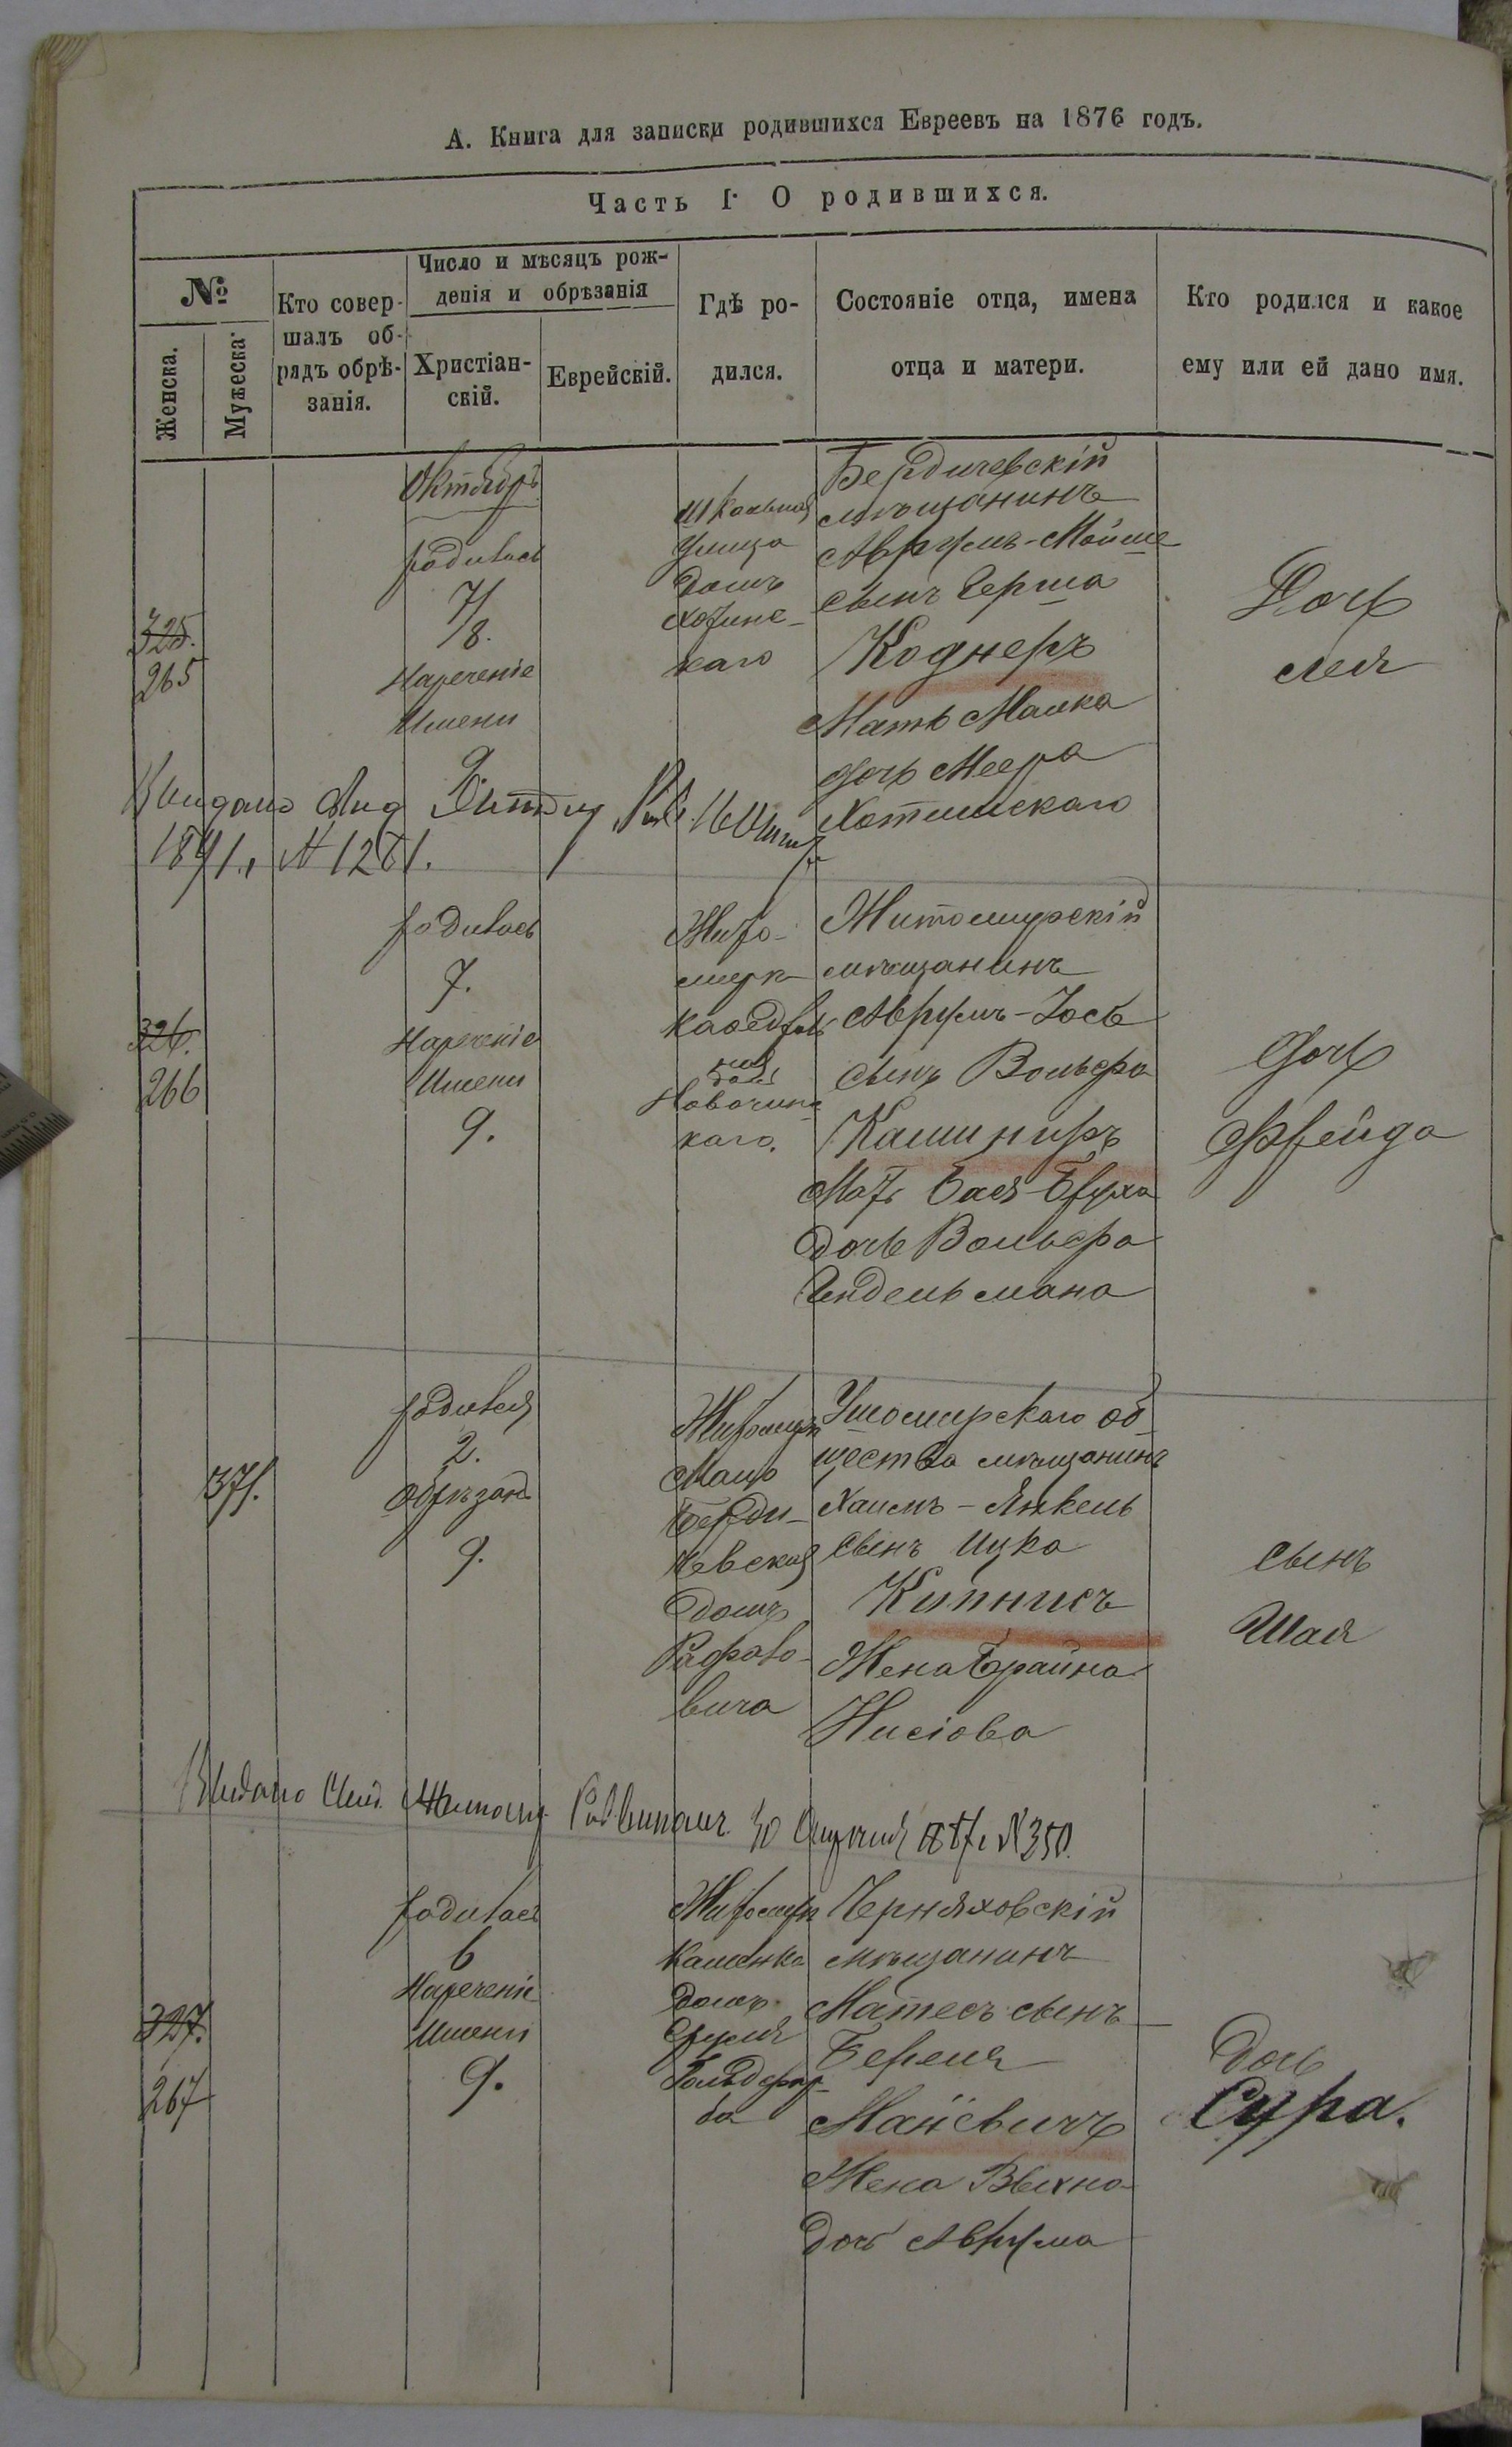 А. Книга для записки родившихся Евреевъ на 1876 годъ.
Часть I. О родившихся.
№
Женска.
Мужеска.
Кто совер-
шалъ об-
рядъ обрѣ-
занія.
Число и мѣсяцъ рож-
денія и обрѣзанія
Христіан-
скій.
Еврейскій.
Гдѣ ро-
дился.
Состояніе отца, имена
отца и матери.
Кто родился и какое
ему или ей дано имя.
325.
265
Октябрь
родилась
7/8.
Нареченіе
Имени
9.
Школьная
улица
домъ
каго
Бердичевскій
мѣщанинъ
Аврумъ-Мойше
сынъ Герша
Коднеръ
Мать Малка
дочь Меера
Хотимскаго
Дочь
Лея
Выдано
1891, № 1261.
326.
266
родилась
7.
Нареченіе
Имени
9.
Жито-
мир
каѳедраль
ная
домъ
каго.
Житомирскій
мѣщанинъ
Аврумъ-Іось
сынъ Вольфа
Кашниръ
Мать Бася-Бруха
дочь Вольфа
Индельмана
Дочь
Фрейда
371.
родился
2.
Обрѣзанъ
9.
Житомиръ
Мало
Берди-
чевская
домъ
вича
Ушомирскаго об-
щества мѣщанинъ
Хаимъ-Янкель
сынъ Ицка
Кипнисъ
Жена Брайна
Нисіова
сынъ
Шая
Выдано Раввиномъ 30 № 350.
327.
267
родилась
6
Нареченіе
Имени
9.
Житомиръ
Каменка
домъ
Сруля
Гольдфар-
ба
Черняховскій
мѣщанинъ
Матесъ сынъ
Береля
Маневичъ
Жена Выхна
дочь Аврума
дочь
Сура.